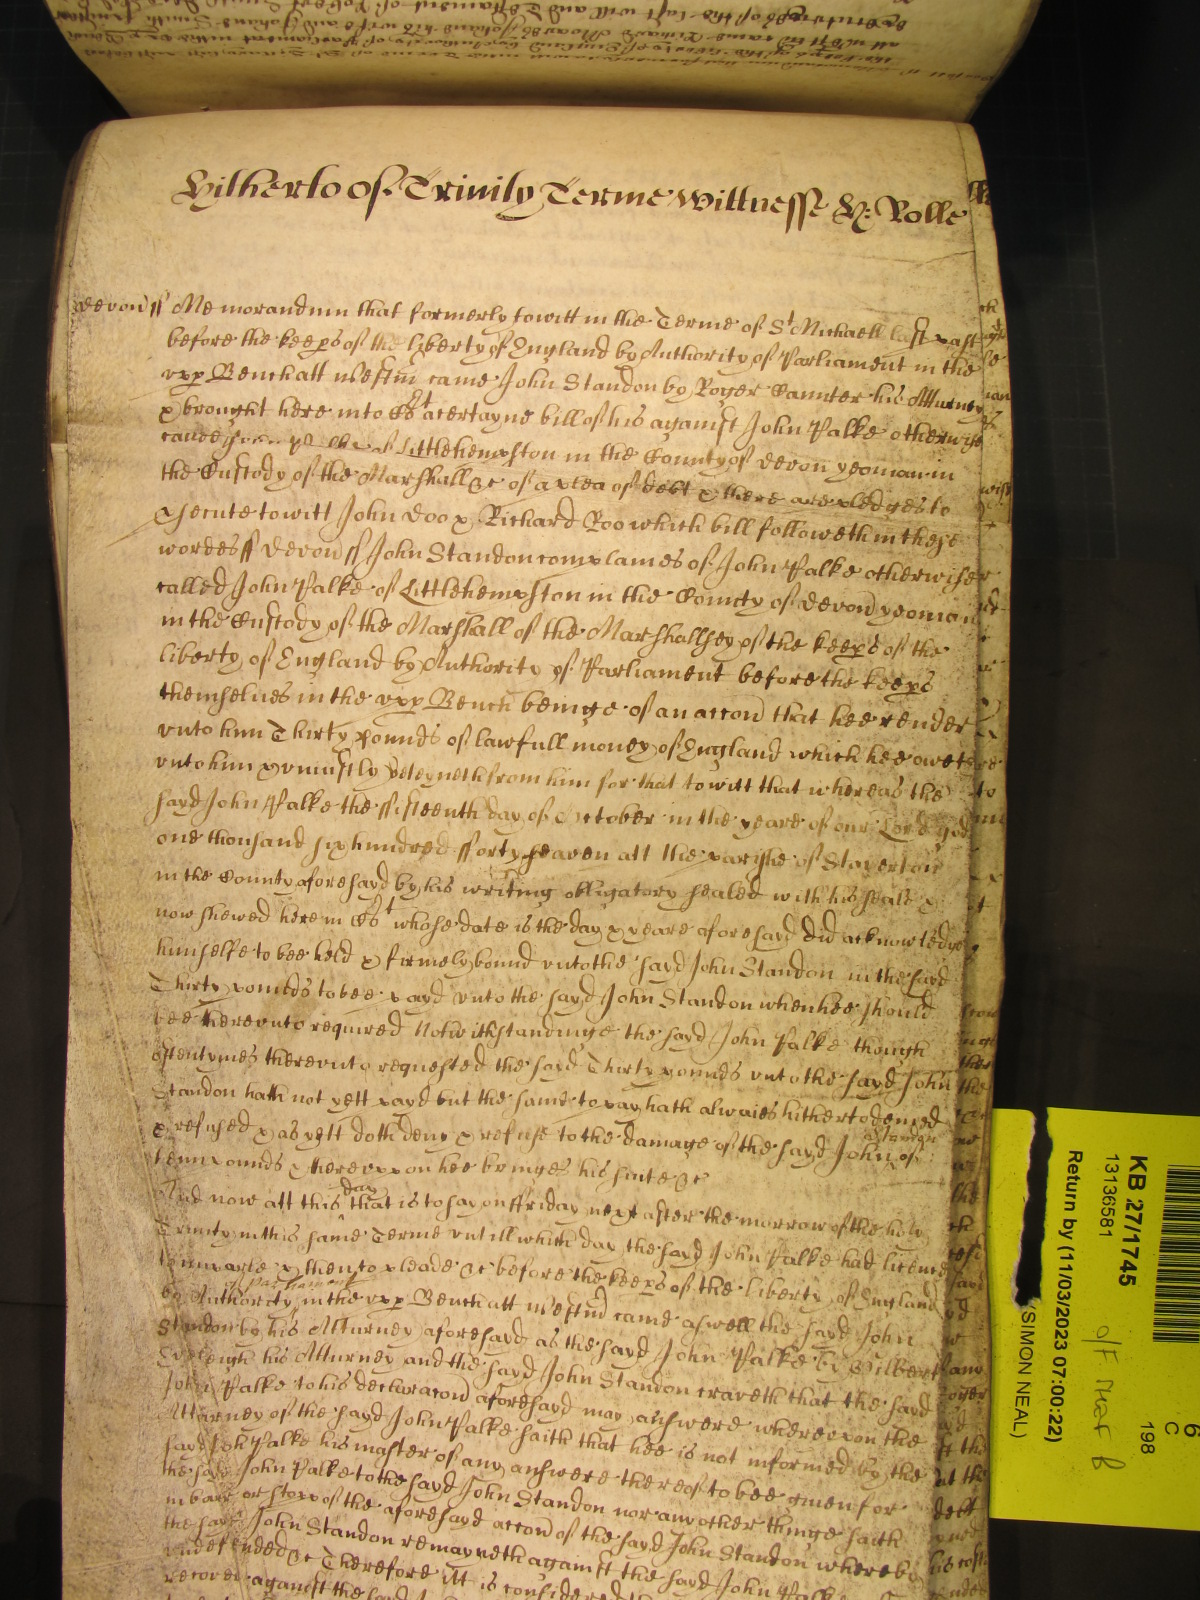 Hitherto of Trinity Terme Wittnesse H: Rolle
devon ss Memorandum that formerly towitt in the Terme of St Michaell last past
before the keeps of the liberty of England by Authority of Parliament in the
upp Bench att Westm came John Standon by Roger Caunter his Atturney
& brought here into Cot a certayne bill of his against John Palke otherwise
called John Palke of Littlehempston in the County of devon yeoman in
the Custody of the Marshall &c of a plea of debt & there are pledges to
psecute towitt John doo & Richard Roo which bill followeth in these
wordes ss devon ss John Standon complaines of John Palke otherwise
called John Palke of Littlehempston in the County of devon yeoman
in the Custody of the Marshall of the Marshallsey of the keeps of the
liberty of England by Authority of Parliament before the keeps
themselues in the upp Bench beinge of an accon that hee render
vnto him Thirty pounds of lawfull money of England which hee oweth
vnto him & vniustly deteyneth from him for that towitt that whereas the
sayd John Palke the fifteenth day of October in the yeare of our Lord god
one thousand six hundred fforty seaven att the parishe of Staverton
in the County aforesayd by his writing obligatory sealed with his seale &
now shewed here in Cot whose date is the day & yeare aforesayd did acknowledge
himselfe to bee held & firmely bound vnto the sayd John Standon in the sayd
Thirty pounds to bee payd vnto the sayd John Standon when hee should
bee therevnto required Notwithstandinge the sayd John Palke though
oftentymes therevnto requested the sayd Thirty pounds vnto the sayd John
Standon hath not yett payd but the same to pay hath alwaies hitherto denied
& refused & as yett doth deny & refuse to the damage of the sayd John Standon of
tenn pounds & therevpon hee bringes his suite &c
And now att this day that is to say on ffriday next after the morrow of the holy
Trinity in this same Terme vntill which day the sayd John Palke had licence
to imparle & then to pleade &c before the keeps of the liberty of England
by Authority of Parliament in the upp Bench att Westm came aswell the sayd John
Standon by his Atturney aforesayd as the sayd John Palke by Gilbert
Eveleigh his Atturney and the sayd John Standon craveth that the sayd
John Palke to his declaracon aforesayd may answere wherevpon the
Atturney of the sayd John Palke saith that hee is not informed by the
sayd John Palke his master of any answere thereof to bee given for
the sayd John Palke to the sayd John Standon nor any other thinge saith
in barr or stopp of the aforesayd accon of the sayd John Standon whereby
the sayd John Standon remayneth against the sayd John Palke
vndefended &c Therefore itt is considered
recover against the sayd
KB 27/1745
13136581
Return by (11/03/2023 07:00:22)
(SIMON NEAL)
198
C
6